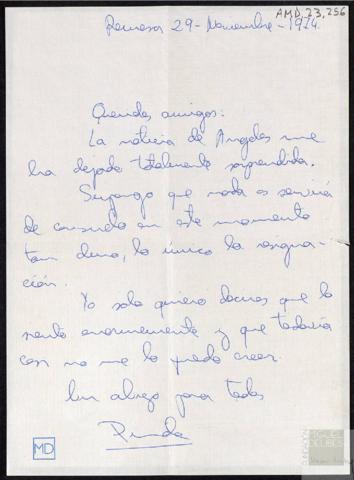 AMD, 23, 256
29 - Noviembre - 1974.
Queridos amigos:
La noticia de Angeles me
ha dejado totalmente sorprendida.
Supongo que nada os servirá
de consuelo en este momento
tan duro, lo único la resigna-
ción.
Yo solo quiero deciros que lo
siento enormemente y que todavía
casi no me lo puedo creer.
Un abrazo para todos
MD
FUNDACIÓN
MIGUEL
DELIBES